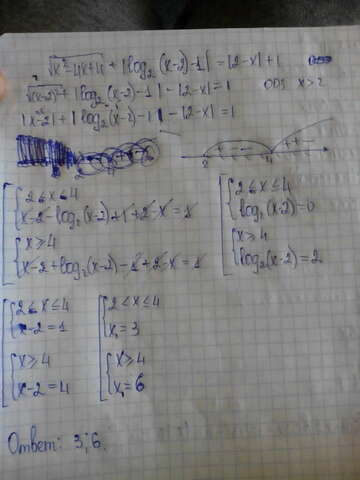 √(x²-4x+4) + |log₂(x-2)-1| = |2-x|+1
√(x-2)² + |log₂(x-2)-1| - |2-x| = 1 ОДЗ x>2
|x-2| + |log₂(x-2)-1| - |2-x| = 1
2 4
2<x≤4
x-2-log₂(x-2)+1+2-x=1
x≥4
x-2+log₂(x-2)-1+2-x=1
2<x≤4
log₂(x-2)=0
x≥4
log₂(x-2)=2
2<x≤4
x-2=1
x≥4
x-2=4
2<x≤4
x₁=3
x≥4
x₁=6
Ответ: 3; 6.